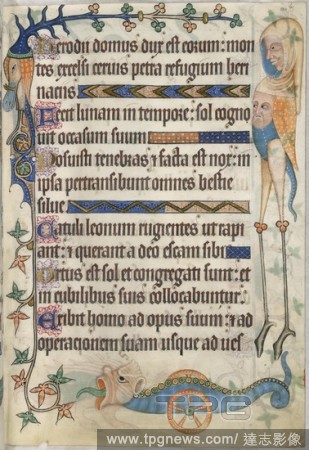 herodii domus dux est eorum: mon
tes excelsi ceruis petra refugium heri
naciis
Fecit lunam in tempore: sol cogno
uit occasum suum
Posuisti tenebras ⁊ facta est nox: in
ipsa pertransibunt omnes bestie
silue
Catuli leonum rugientes ut rapi
ant: ⁊ querant a deo escam sibi
Ortus est sol et congregati sunt: et
in cubilibus suis collocabuntur
Exibit homo ad opus suum: ⁊ ad
operacionem suam usque ad ues
TPG
www.tpgnews.com/ 達志影像